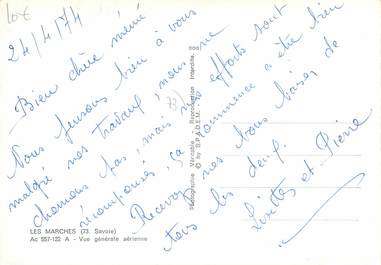 10€
24/4/74
Bien chère mémé
Nous pensons bien à vous
malgré nos travaux, nous ne
chomons pas, mais nos efforts sont
récompensés, ça commence à être bien
Recevez nos bons baisers de
tous les deux.
Lisette et Pierre
(73)
LES MARCHES (73. Savoie)
Ac 557-122 A - Vue générale aérienne
Photographie Véritable - Reproduction Interdite.
© by S.P.A.D.E.M.